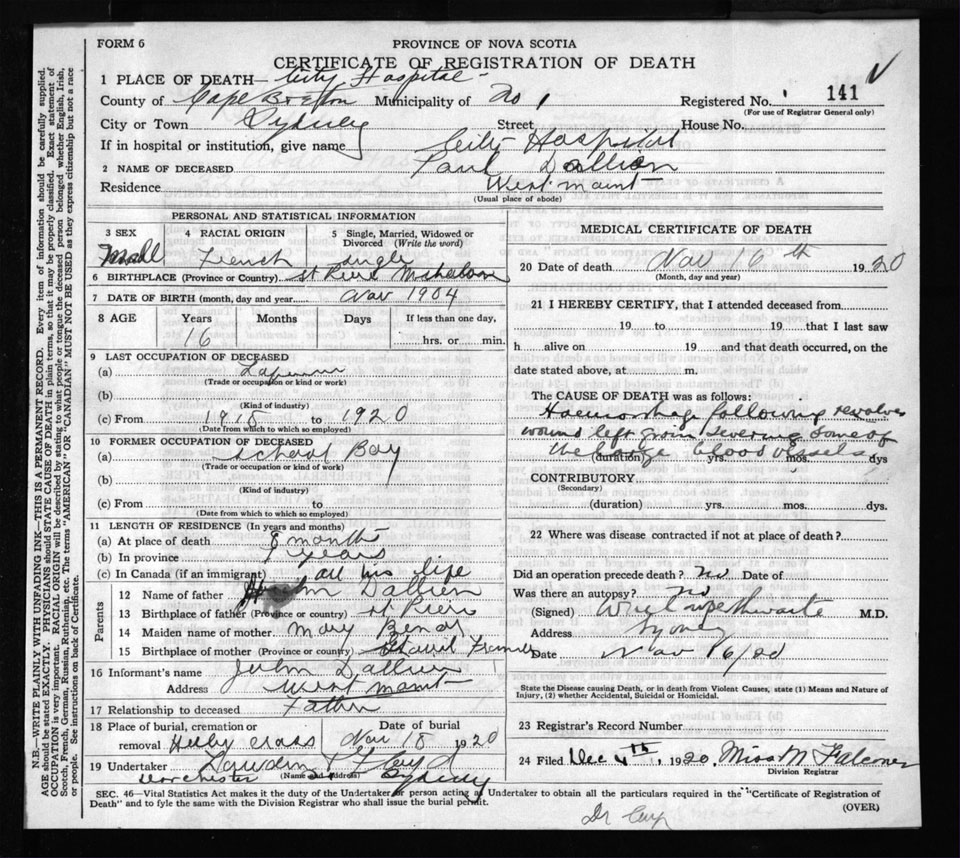 FORM 6
PROVINCE OF NOVA SCOTIA
CERTIFICATE OF REGISTRATION OF DEATH
1 PLACE OF DEATH— City Hospital –
County of Cape Breton Municipality of No 1 Registered No. 141
(For use of Registrar General only)
City or Town Sydney Street House No.
If in hospital or institution, give name City Hospital
2 NAME OF DECEASED Paul Dallien
Residence West mount
(Usual place of abode)
PERSONAL AND STATISTICAL INFORMATION
3 SEX 4 RACIAL ORIGIN 5 Single, Married, Widowed or Divorced (Write the word)
French Single
6 BIRTHPLACE (Province or Country) St
7 DATE OF BIRTH (month, day and year) Nov 1904
8 AGE Years Months Days If less than one day,
16 hrs. or min.
9 LAST OCCUPATION OF DECEASED
(a)
(Trade or occupation or kind or work)
(b)
(Kind of industry)
(c) From 1918 to 1920
(Date from which to which so employed)
10 FORMER OCCUPATION OF DECEASED
(a) School Boy
(Trade or occupation or kind of work)
(b)
(Kind of industry)
(c) From to
(Date from which to which so employed)
11 LENGTH OF RESIDENCE (In years and months)
(a) At place of death 8 months
(b) In province years
(c) In Canada (if an immigrant) all his life
Parents
12 Name of father Dallien
13 Birthplace of father (Province or country) St Piere
14 Maiden name of mother Mary
15 Birthplace of mother (Province or country)
16 Informant's name John Dallien
Address West mount
17 Relationship to deceased Father
18 Place of burial, cremation or removal Date of burial
Holy Cross Nov 18 1920
19 Undertaker
(Name and Address)
Dorchester Sydney
MEDICAL CERTIFICATE OF DEATH
20 Date of death Nov 16th 1920
(Month, day and year)
21 I HEREBY CERTIFY, that I attended deceased from
19 to 19 that I last saw
h alive on 19 and that death occurred, on the
date stated above, at m.
The CAUSE OF DEATH was as follows:
Haemorrhage following revolver
wound left groin severing some of
the large blood vessels
(duration) yrs. mos. dys
CONTRIBUTORY
(Secondary)
(duration) yrs. mos. dys.
22 Where was disease contracted if not at place of death?
Did an operation precede death? no Date of
Was there an autopsy? no
(Signed) M.D.
Address Sydney
Date Nov 16/20
State the Disease causing Death, or in death from Violent Causes, state (1) Means and Nature of
Injury, (2) whether Accidental, Suicidal or Homicidal.
23 Registrar's Record Number
24 Filed Dec 4th, 1920. Miss M Falconer
Division Registrar
SEC. 46—Vital Statistics Act makes it the duty of the Undertaker or person acting as Undertaker to obtain all the particulars required in the "Certificate of Registration of
Death" and to fyle the same with the Division Registrar who shall issue the burial permit.
(OVER)
N.B.—WRITE PLAINLY WITH UNFADING INK—THIS IS A PERMANENT RECORD. Every item of information should be carefully supplied.
AGE should be stated EXACTLY. PHYSICIANS should STATE CAUSE OF DEATH in plain terms, so that it may be properly classified. Exact statement of
OCCUPATION is very important. RACIAL ORIGIN will be described by stating to what people or tongue the deceased person belonged whether English, Irish,
Scotch, French, German, Russian, Ruthenian, etc. The terms "AMERICAN" or "CANADIAN" MUST NOT BE USED as they express citizenship but not a race
or people. See instructions on back of Certificate.